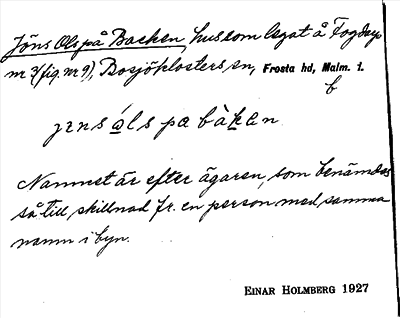 Jöns Ols på Backen, hus som legat å Fogdarp
nr 3 (fig. nr 9), Bosjöklosters sn, Frosta hd, Malm. l.
b
jɪns åls pa bàkən
Namnet är efter ägaren, som benämdes
så till skillnad fr. en person med samma
namn i byn.
EINAR HOLMBERG 1927